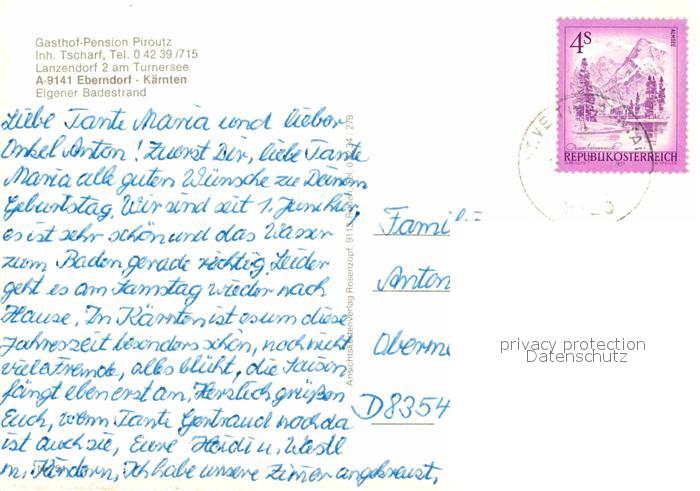 Gasthof-Pension Piroutz
Inh. Tscharf, Tel. 0 42 39 /715
Lanzendorf 2 am Turnersee
A-9141 Eberndorf - Kärnten
Eigener Badestrand
4s
ALMSEE
REPUBLIK ÖSTERREICH
Liebe Tante Maria und lieber
Onkel Anton! Zuerst Dir, liebe Tante
Maria alle guten Wünsche zu Deinem
Geburtstag. Wir sind seit 1. Juni hier,
es ist sehr schön und das Wasser
zum Baden gerade richtig. Leider
geht es am Samstag wieder nach
Hause. In Kärnten ist es um diese
Jahreszeit besonders schön, noch nicht
viele Fremde, alles blüht, die Saison
fängt eben erst an. Herzlich grüßen
Euch, wenn Tante Gertraud noch da
ist auch sie, Eure Heidi u. Wastl
m. Kindern, Ich habe unsere Zimmer angekreuzt,
Ansichtskartenverlag Rosenzopf, 9112
279
Famili
Anton
Oberme
D8354
privacy protection
Datenschutz